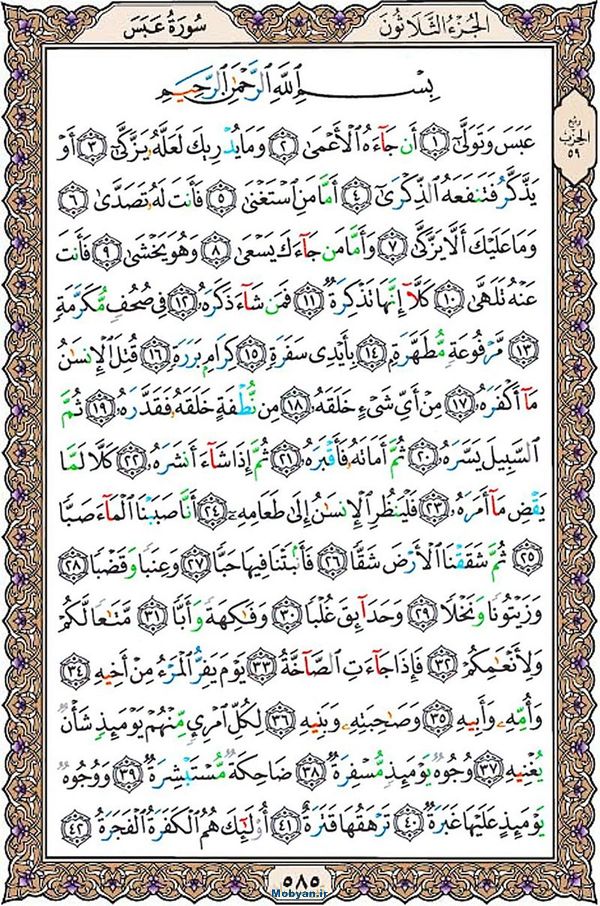 الجُزْءُ الثَّلَاثُونَ
سُورَةُ عَبَسَ
ربع
الحزب
٥٩
بِسْمِ ٱللَّهِ ٱلرَّحْمَٰنِ ٱلرَّحِيمِ
عَبَسَ وَتَوَلَّىٰٓ ١ أَن جَآءَهُ ٱلْأَعْمَىٰ ٢ وَمَا يُدْرِيكَ لَعَلَّهُۥ يَزَّكَّىٰٓ ٣ أَوْ
يَذَّكَّرُ فَتَنفَعَهُ ٱلذِّكْرَىٰٓ ٤ أَمَّا مَنِ ٱسْتَغْنَىٰ ٥ فَأَنتَ لَهُۥ تَصَدَّىٰ ٦
وَمَا عَلَيْكَ أَلَّا يَزَّكَّىٰ ٧ وَأَمَّا مَن جَآءَكَ يَسْعَىٰ ٨ وَهُوَ يَخْشَىٰ ٩ فَأَنتَ
عَنْهُ تَلَهَّىٰ ١٠ كَلَّآ إِنَّهَا تَذْكِرَةٌ ١١ فَمَن شَآءَ ذَكَرَهُۥ ١٢ فِى صُحُفٍ مُّكَرَّمَةٍ
١٣ مَّرْفُوعَةٍ مُّطَهَّرَةٍۭ ١٤ بِأَيْدِى سَفَرَةٍ ١٥ كِرَامٍۭ بَرَرَةٍ ١٦ قُتِلَ ٱلْإِنسَٰنُ
مَآ أَكْفَرَهُۥ ١٧ مِنْ أَىِّ شَىْءٍ خَلَقَهُۥ ١٨ مِن نُّطْفَةٍ خَلَقَهُۥ فَقَدَّرَهُۥ ١٩ ثُمَّ
ٱلسَّبِيلَ يَسَّرَهُۥ ٢٠ ثُمَّ أَمَاتَهُۥ فَأَقْبَرَهُۥ ٢١ ثُمَّ إِذَا شَآءَ أَنشَرَهُۥ ٢٢ كَلَّا لَمَّا
يَقْضِ مَآ أَمَرَهُۥ ٢٣ فَلْيَنظُرِ ٱلْإِنسَٰنُ إِلَىٰ طَعَامِهِۦٓ ٢٤ أَنَّا صَبَبْنَا ٱلْمَآءَ صَبًّا
٢٥ ثُمَّ شَقَقْنَا ٱلْأَرْضَ شَقًّا ٢٦ فَأَنۢبَتْنَا فِيهَا حَبًّا ٢٧ وَعِنَبًا وَقَضْبًا ٢٨
وَزَيْتُونًا وَنَخْلًا ٢٩ وَحَدَآئِقَ غُلْبًا ٣٠ وَفَٰكِهَةً وَأَبًّا ٣١ مَّتَٰعًا لَّكُمْ
وَلِأَنْعَٰمِكُمْ ٣٢ فَإِذَا جَآءَتِ ٱلصَّآخَّةُ ٣٣ يَوْمَ يَفِرُّ ٱلْمَرْءُ مِنْ أَخِيهِ ٣٤
وَأُمِّهِۦ وَأَبِيهِ ٣٥ وَصَٰحِبَتِهِۦ وَبَنِيهِ ٣٦ لِكُلِّ ٱمْرِئٍ مِّنْهُمْ يَوْمَئِذٍ شَأْنٌ
يُغْنِيهِ ٣٧ وُجُوهٌ يَوْمَئِذٍ مُّسْفِرَةٌ ٣٨ ضَاحِكَةٌ مُّسْتَبْشِرَةٌ ٣٩ وَوُجُوهٌ
يَوْمَئِذٍ عَلَيْهَا غَبَرَةٌ ٤٠ تَرْهَقُهَا قَتَرَةٌ ٤١ أُو۟لَٰٓئِكَ هُمُ ٱلْكَفَرَةُ ٱلْفَجَرَةُ ٤٢
٥٨٥
Mobyan.ir